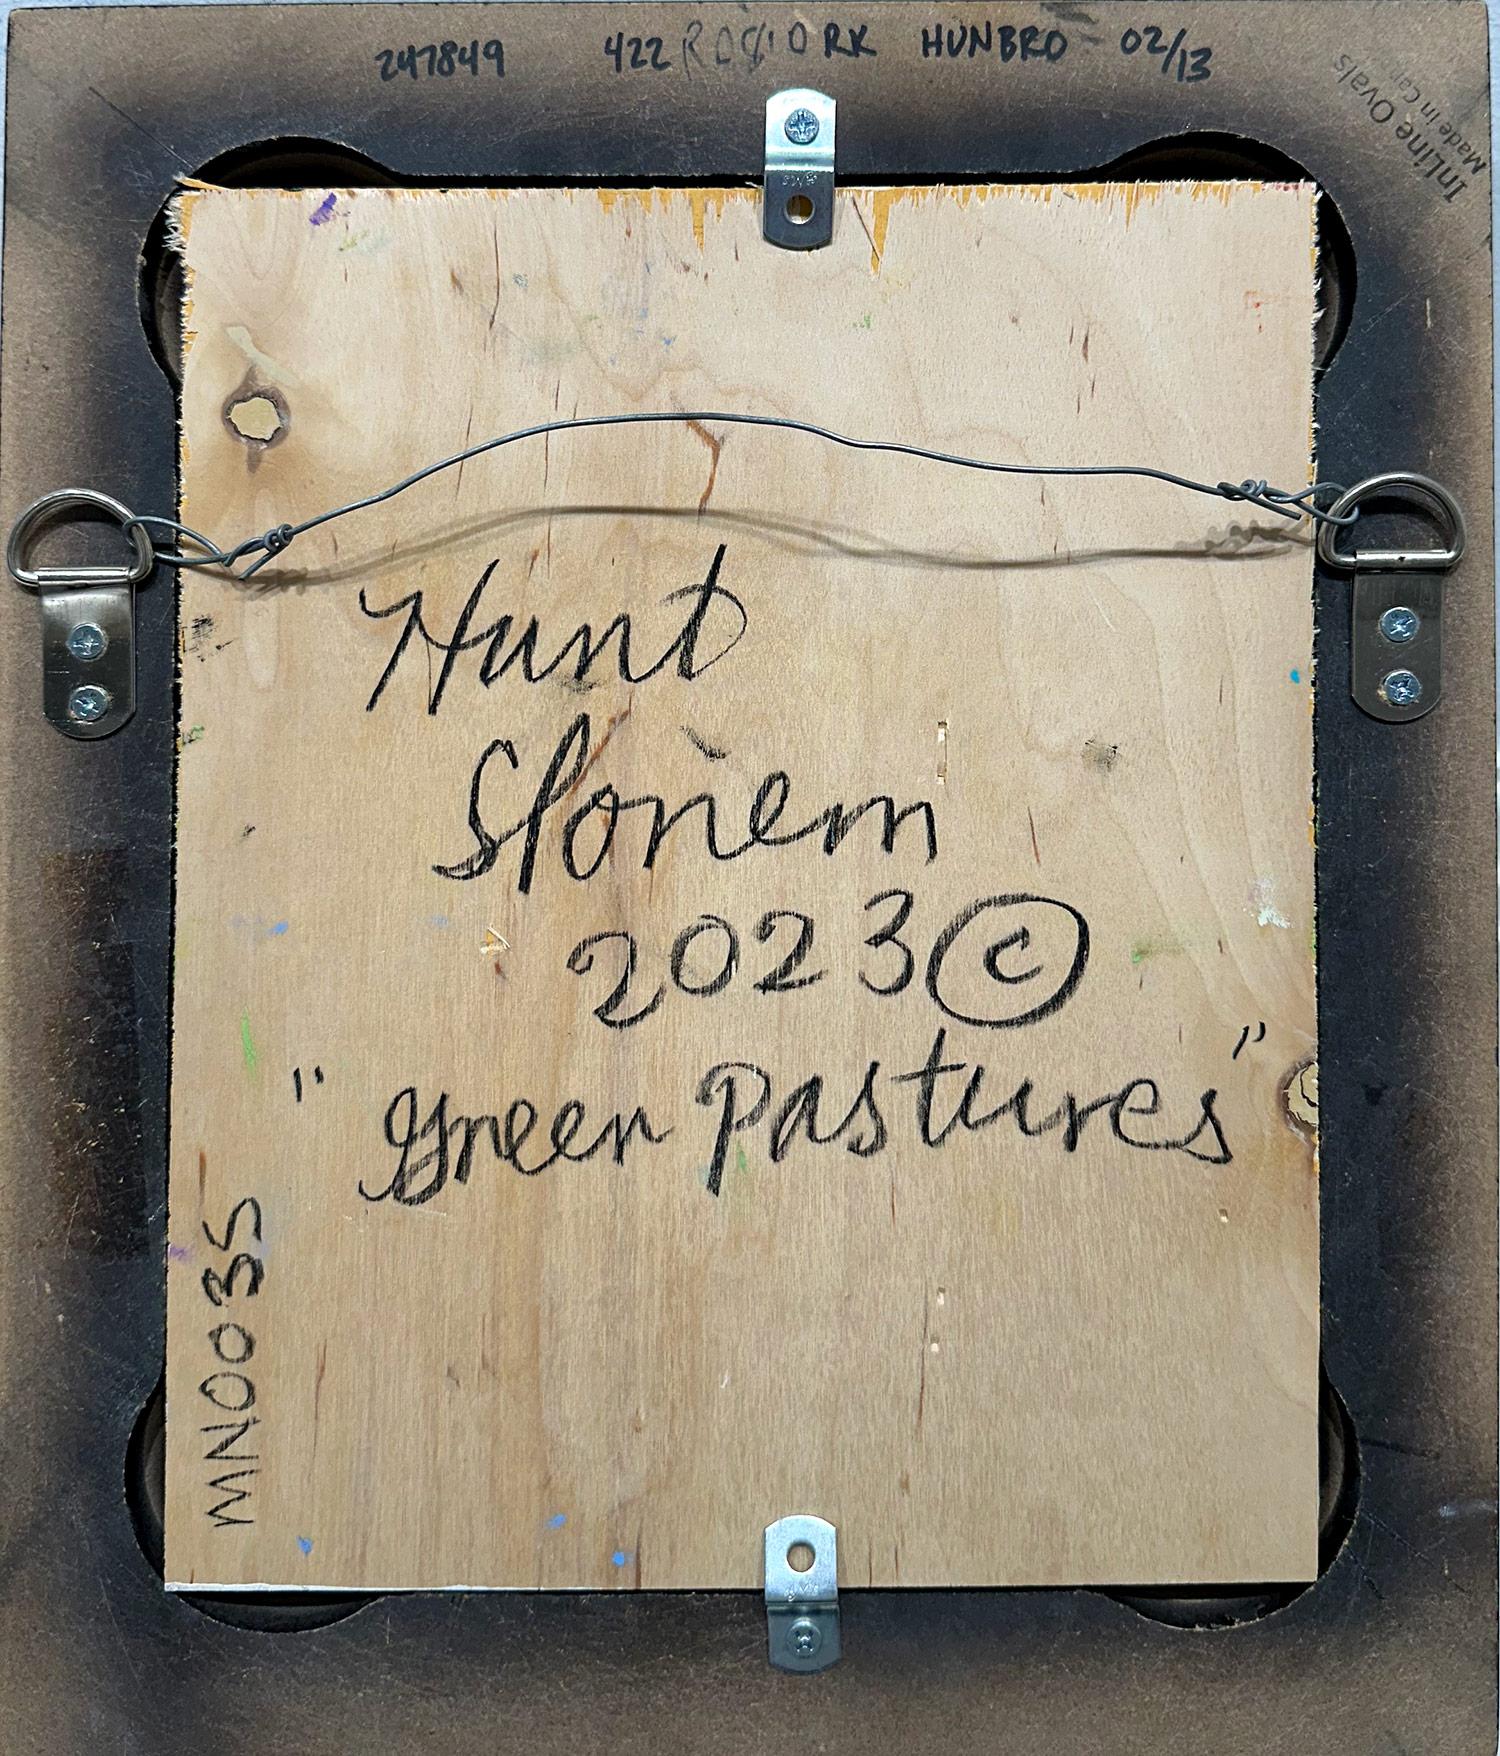 247849 422 RK HUNBRO - 02/13
InLine Ovals
Made in Can
Hunt
Slonem
2023 ©
"Green Pastures"
MN0035